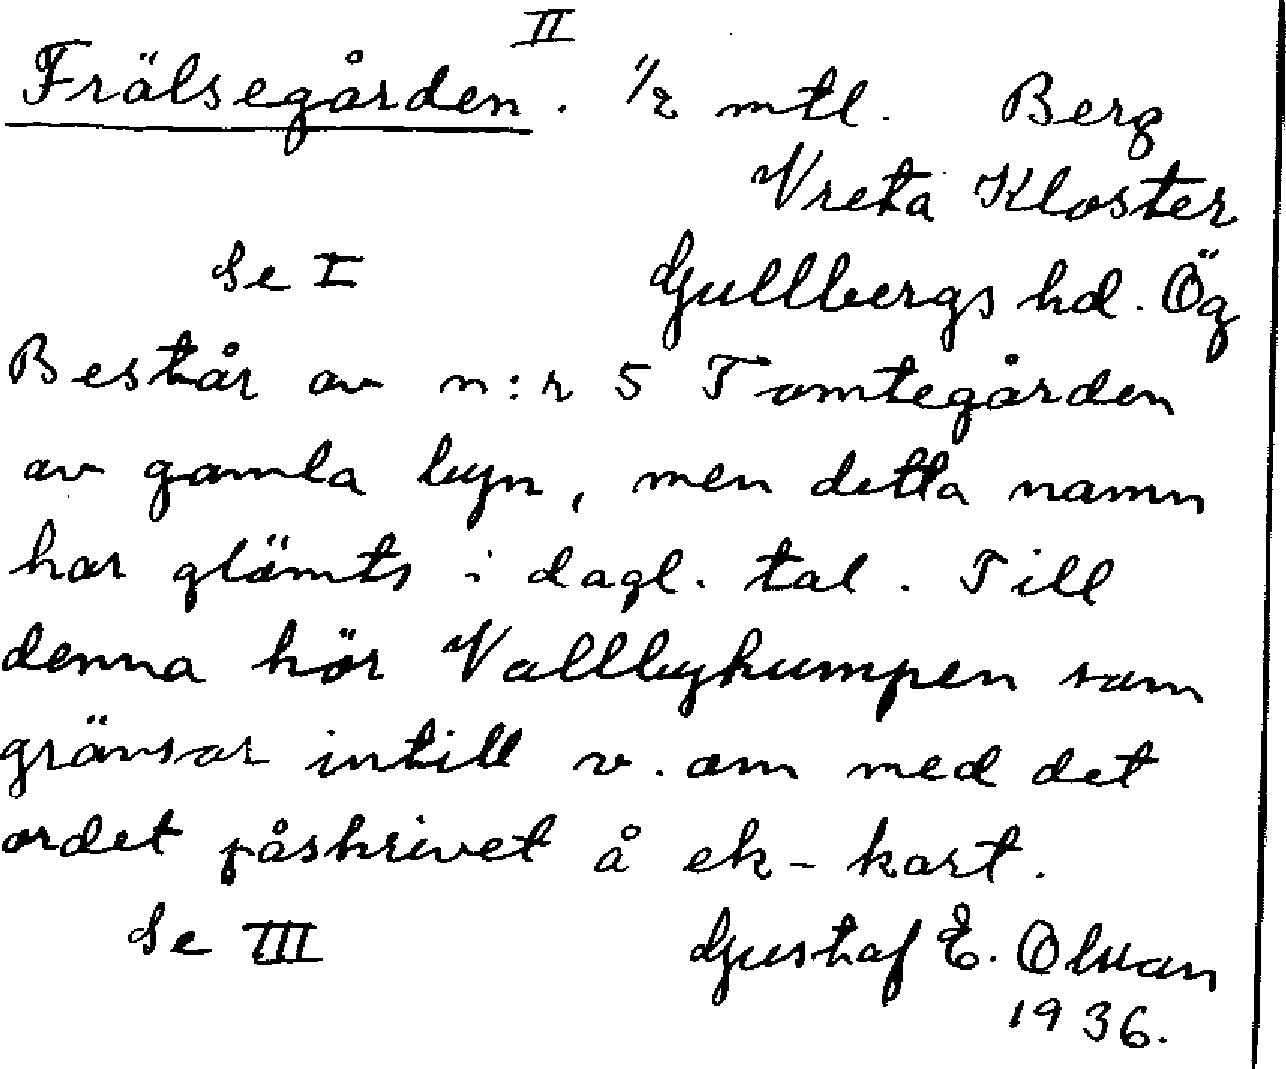 II
Frälsegården. 1/2 mtl. Berg
Vreta Kloster
Se I Gullbergs hd. Ög
Består av n:r 5 Tomtegården
av gamla byn, men detta namn
har glömts i dagl. tal. Till
denna hör Vallbykumpen som
gränsar intill v. om med det
ordet påskrivet å ek-kart.
Se III Gustaf E. Olsson
1936.